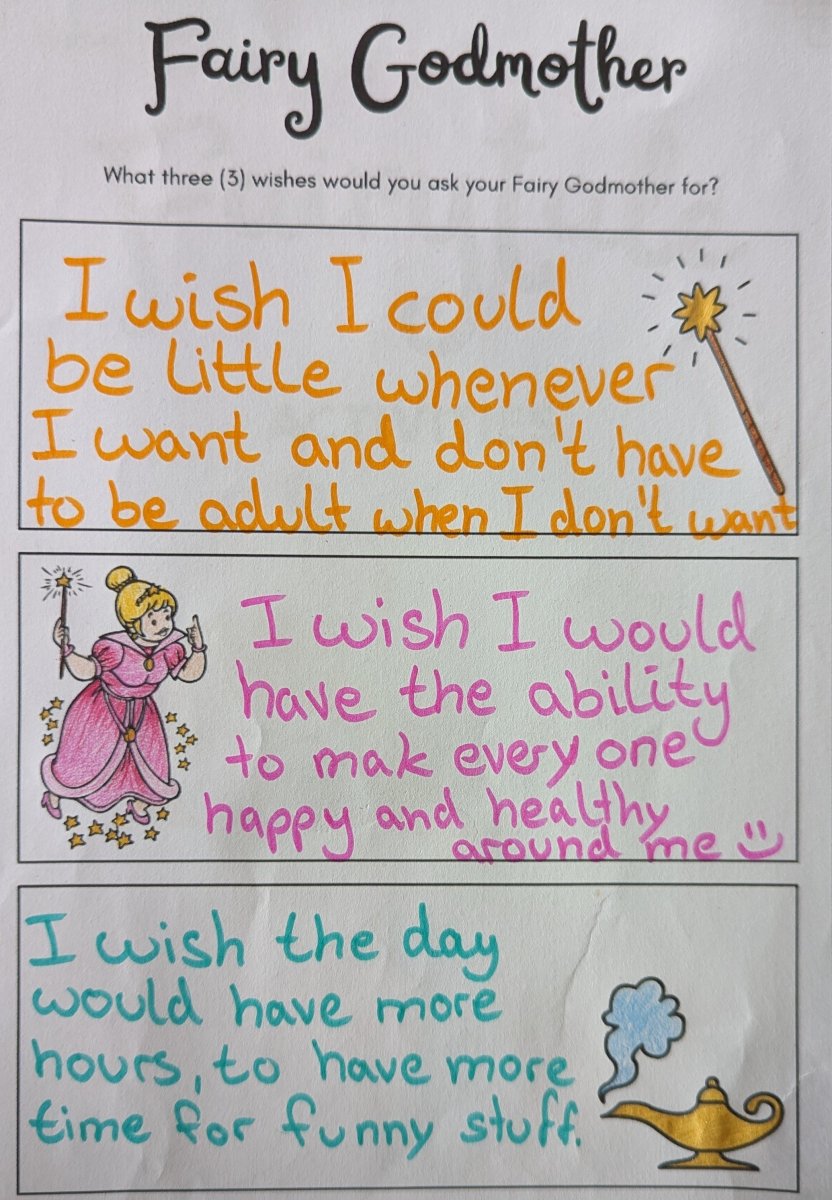 Fairy Godmother
What three (3) wishes would you ask your Fairy Godmother for?
I wish I could
be little whenever
I want and don't have
to be adult when I don't want
I wish I would
have the ability
to mak every one
happy and healthy
around me
I wish the day
would have more
hours, to have more
time for funny stuff.